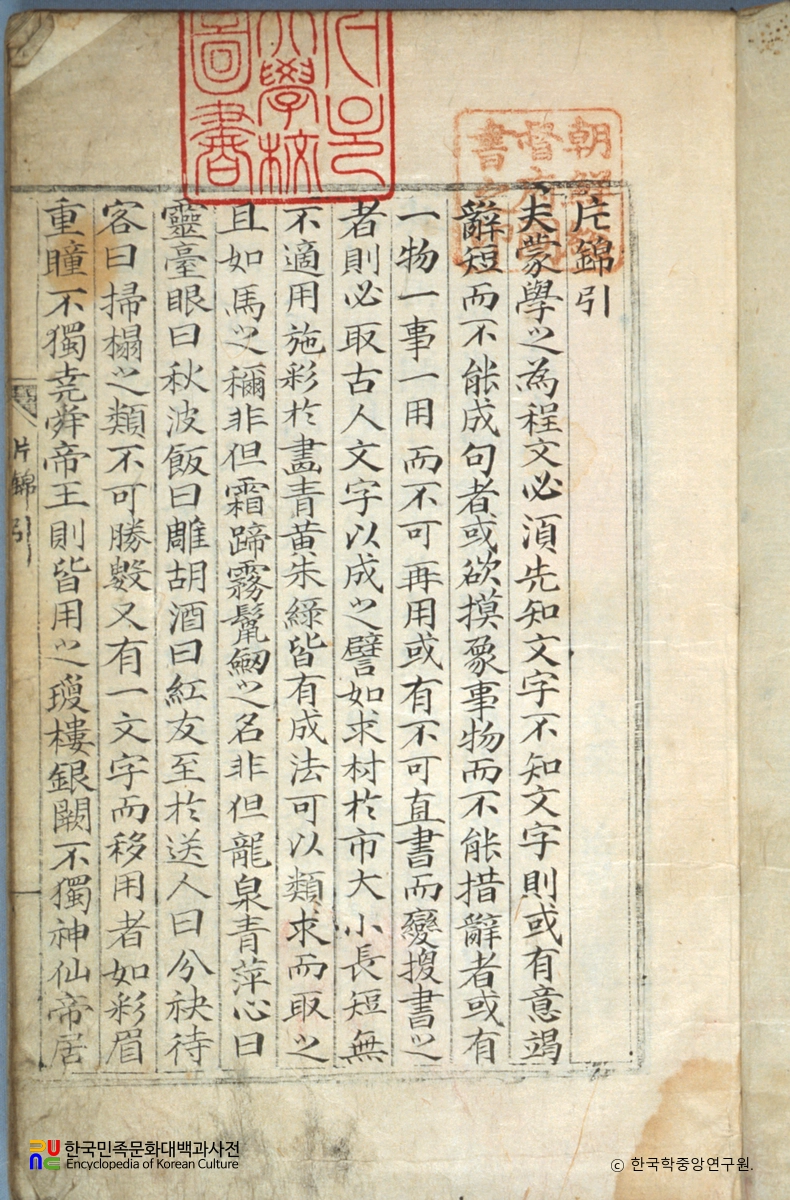 片錦引
夫蒙學之為程文必須先知文字不知文字則或有意竭
辭短而不能成句者或欲摸象事物而不能措辭者或有
一物一事一用而不可再用或有不可直書而變搜書之
者則必取古人文字以成之譬如求材於市大小長短無
不適用施彩於畵青黄朱綠皆有成法可以類求而取之
且如馬之稱非但霜蹄霧鬣劒之名非但龍泉青萍心曰
靈臺眼曰秋波飯曰雕胡酒曰紅友至於送人曰分袂待
客曰掃榻之類不可勝數又有一文字而移用者如彩眉
重瞳不獨堯舜帝王則皆用之瓊樓銀闕不獨神仙帝居
片錦引
圖書
大學校
朝鮮
督府
書
한국민족문화대백과사전
Encyclopedia of Korean Culture
ⓒ 한국학중앙연구원.